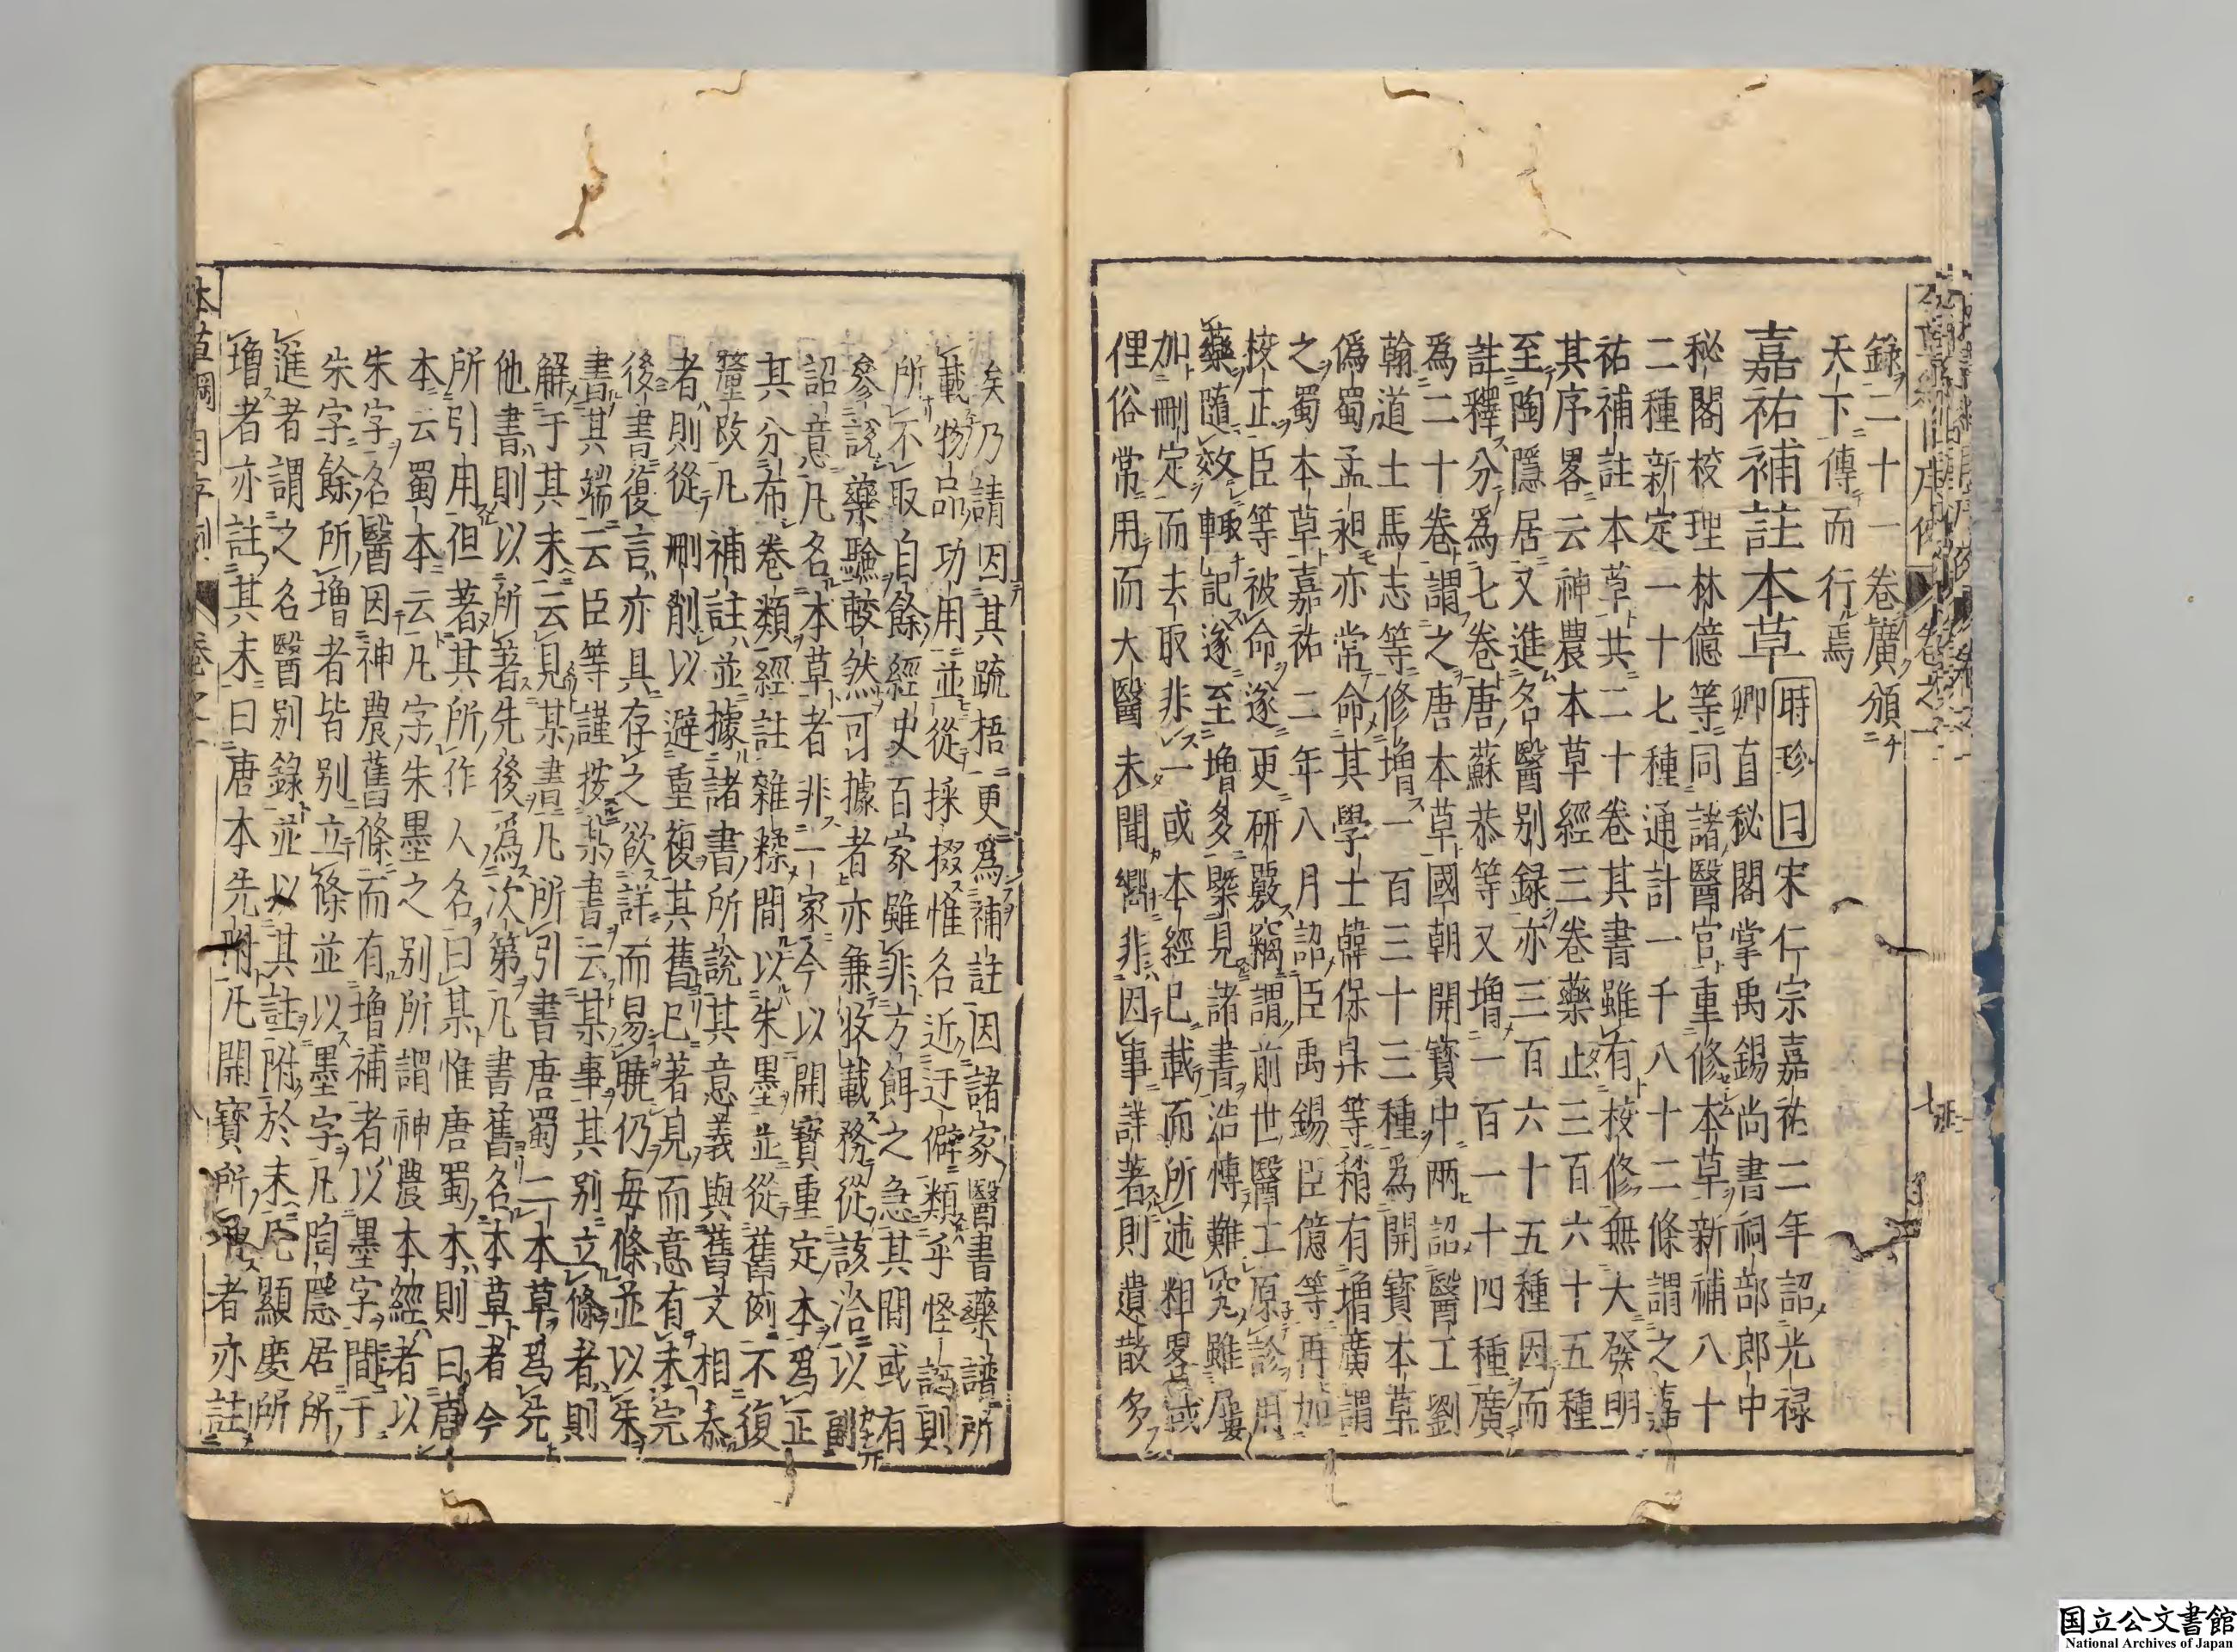 錄二十一卷廣頒
天下傳而行焉
嘉祐補註本草 時珍曰宋仁宗嘉祐二年詔光禄
卿直秘閣掌禹錫尚書祠部郎中
秘閣校理林億等同諸醫官重修本草新補八十
二種新定一十七種通計一千八十二條謂之嘉
祐補註本草共二十卷其書雖有校修無大發明
其序畧云神農本草經三卷藥止三百六十五種
至陶隱居又進名醫别録亦三百六十五種因而
註釋分為七卷唐蘇恭等又增一百一十四種廣
為二十卷謂之唐本草國朝開寳中两詔醫工劉
翰道士馬志等修增一百三十三種為開寳本草
僞蜀孟昶亦常命其學士韓保昇等稍有增廣謂
之蜀本草嘉祐二年八月詔臣禹錫臣億等再加
校正臣等被命遂更研覈竊謂前世醫工原診用
藥隨效輙記遂至增多槩見諸書浩愽難究雖屢
加删定而去取非一或本經巳載而所述粗畧或
俚俗常用而大醫未聞嚮非因事詳著則遺散多
矣乃請因其䟽捂更為補註因諸家醫書藥譜所
載物品功用並從採掇惟名近迂僻類乎怪誕則
所不取自餘經史百家雖非方餌之急其間或有
參說藥驗較然可據者亦兼收載務從該洽以副
詔意凡名本草者非一家今以開寳重定本為正
其分布卷類經註雜糅間以朱墨並從舊例不復
釐改凡補註並據諸書所說其意義與舊文相叅
者則從删削以避重複其舊巳著見而意有未完
後書復言亦具存之欲詳而易曉仍每條並以朱
書其端云臣等謹按某書云某事其别立條者則
解于其末云見某書凡所引書唐蜀二本草為先
他書則以所著先後為次第凡書舊名本草者今
所引用但著其所作人名曰某惟唐蜀本則曰唐
本云蜀本云凡字朱墨之别所謂神農本經者以
朱字名醫因神農舊條而有增補者以墨字間于
朱字餘所增者皆别立條並以墨字凡陶隱居所
進者謂之名醫别錄並以其註附於末凡顯慶所
增者亦註其末曰唐本先附凡開寳所增者亦註
本草綱目序例 卷之一
国立公文書館
National Archives of Japan